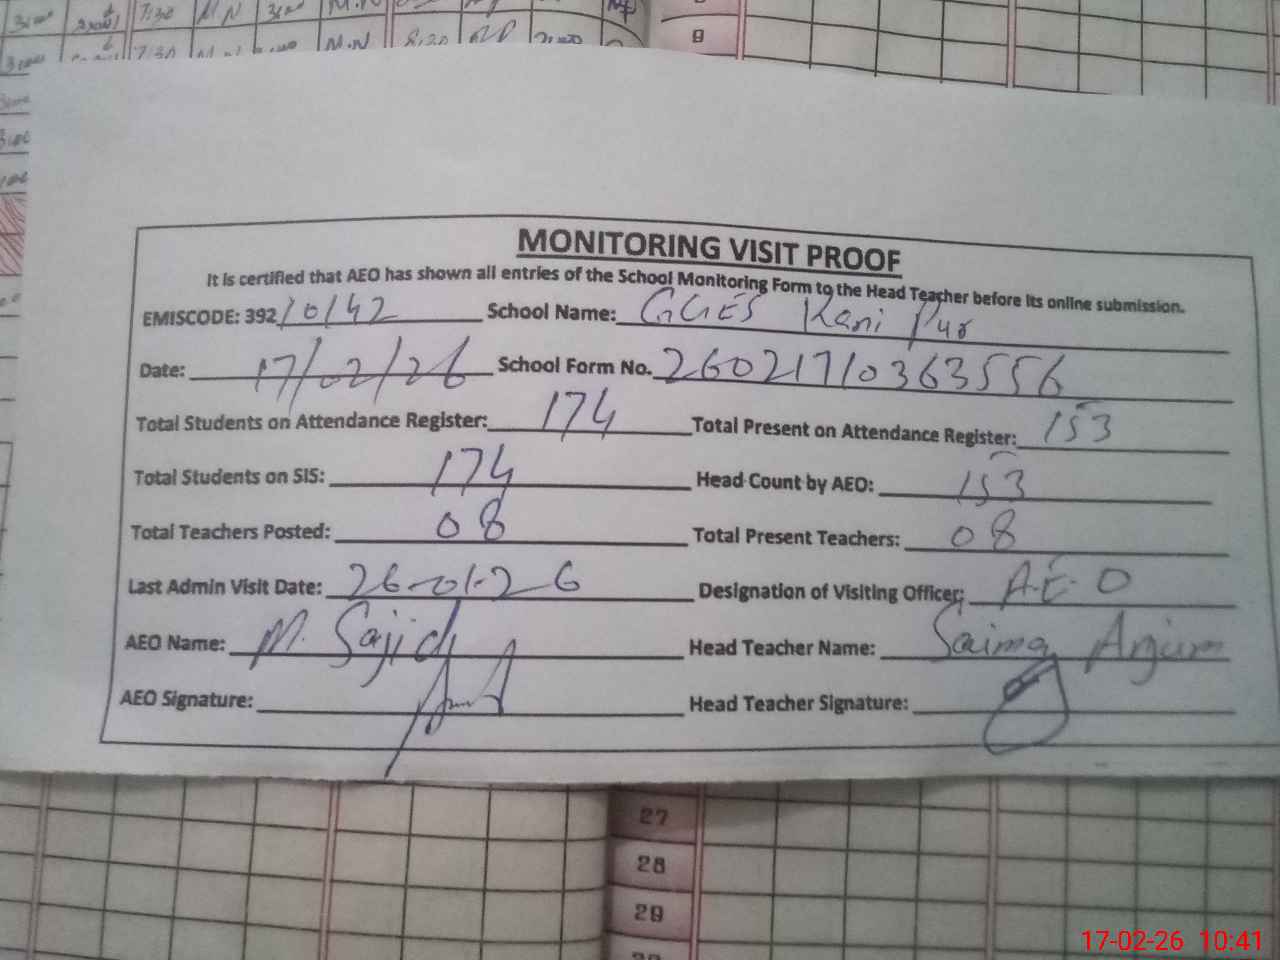 3100 7:30 M.N 3100 M.N
7:30 M.N 8:20
9
MONITORING VISIT PROOF
It is certified that AEO has shown all entries of the School Monitoring Form to the Head Teacher before its online submission.
EMISCODE: 392 10142 School Name: GGES Kani Pur
Date: 17/02/26 School Form No. 26021710363556
Total Students on Attendance Register: 174 Total Present on Attendance Register: 153
Total Students on SIS: 174 Head Count by AEO: 153
Total Teachers Posted: 08 Total Present Teachers: 08
Last Admin Visit Date: 26-01-26 Designation of Visiting Officer: A.E.O
AEO Name: M. Sajid Head Teacher Name: Saima Anjum
AEO Signature: Head Teacher Signature:
27
28
29
17-02-26 10:41